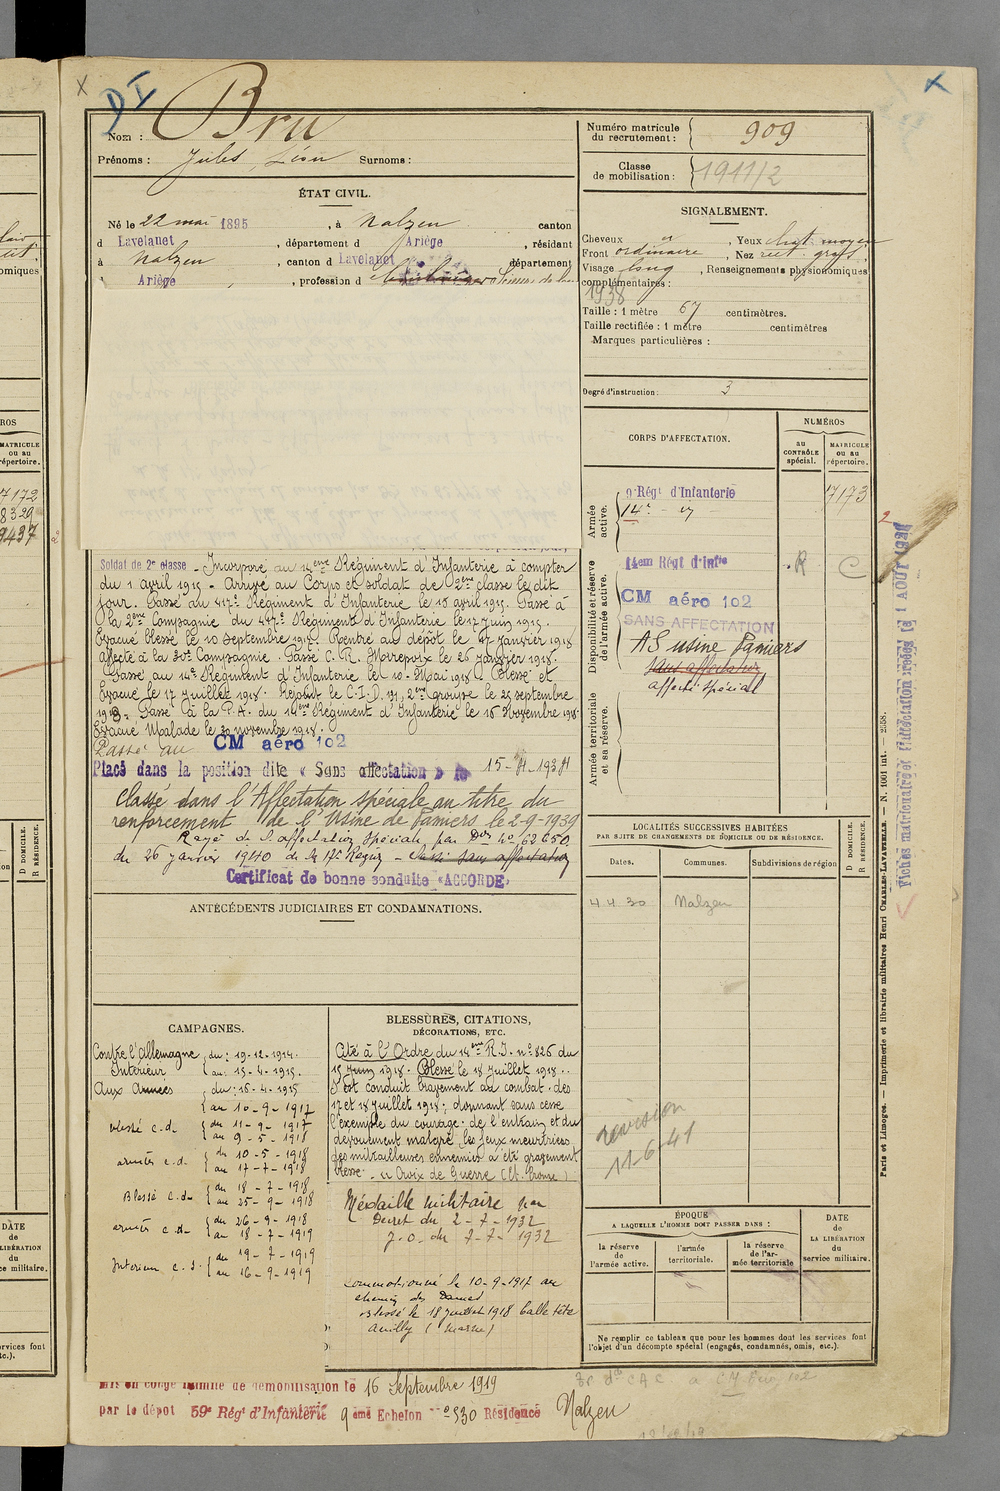 DI
Nom : Bru
Prénoms : Jules, Léon Surnoms :
ÉTAT CIVIL.
Né le 22 mai 1895, à Nalzen canton
d Lavelanet, département d Ariège, résidant
à Nalzen, canton d Lavelanet département
Ariège, profession d
Numéro matricule du recrutement : 909
Classe de mobilisation : 1911/2
SIGNALEMENT.
Cheveux Yeux chat. moyen
Front ordinaire, Nez rect.
Visage long, Renseignements physionomiques
complémentaires :
1938
Taille : 1 mètre 67 centimètres.
Taille rectifiée : 1 mètre centimètres
Marques particulières :
Degré d'instruction : 3
CORPS D'AFFECTATION.
NUMÉROS
au CONTRÔLE spécial.
MATRICULE ou au répertoire.
Armée active.
9e Régt d'Infanterie 17173
14e
Disponibilité et réserve de l'armée active.
14em Régt d'Infie R C
CM aéro 102
SANS AFFECTATION
AS usine Pamiers
sans affectation
affecté spécial
Armée territoriale et sa réserve.
Soldat de 2e classe - Incorporé au 14ème Régiment d'Infanterie à compter
du 1 avril 1915 - Arrivé au Corps et soldat de 2ème classe le dit
jour. Passé au 417e Régiment d'Infanterie le 18 avril 1915. Passé à
la 2ème Compagnie du 417e Régiment d'Infanterie le 17 juin 1915.
Evacué blessé le 10 septembre 1917. Rentré au dépôt le 27 janvier 1918
affecté à la 30e Compagnie. Passé C.R. Mirepoix le 26 janvier 1918.
Passé au 14e Régiment d'Infanterie le 10 Mai 1918. Blessé et
Evacué le 17 juillet 1918. Rejoint le C.I.D. 131, 2ème groupe le 25 septembre
1918. Passé à la P.A. du 14ème Régiment d'Infanterie le 16 Novembre 1918
Evacué Malade le 30 novembre 1918.
Passé au CM aéro 102
Placé dans la position dite « Sans affectation » le 15-4-1934
Classé dans l'Affectation spéciale au titre du
renforcement de l'Usine de Pamiers le 2-9-1939
Rayé de l'affectation spéciale par Don No 62650
du 26 janvier 1940 de la 17e Région - Classé sans affectation
Certificat de bonne conduite « ACCORDÉ »
ANTÉCÉDENTS JUDICIAIRES ET CONDAMNATIONS.
LOCALITÉS SUCCESSIVES HABITÉES
PAR SUITE DE CHANGEMENTS DE DOMICILE OU DE RÉSIDENCE.
Dates. Communes. Subdivisions de région D DOMICILE. R RÉSIDENCE.
4 4 30 Nalzen
révision
11-6-41
CAMPAGNES.
Contre l'Allemagne du : 19-12-1914.
Intérieur au : 15-4-1915.
Aux Armées du : 16-4-1915
au 10-9-1917
blessé c.d. du 11-9-1917
au 9-5-1918
armées c.d. du 10-5-1918
au 17-7-1918
Blessé c.d. du 18-7-1918
au 25-9-1918
armées c.d. du 26-9-1918
au 18-7-1919
Intérieur c.d. du 19-7-1919
au 16-9-1919
BLESSURES, CITATIONS,
DÉCORATIONS, ETC.
Cité à l'Ordre du 14ème R.I. no 826 du
15 juin 1918. Blessé le 18 juillet 1918.
S'est conduit bravement au combat des
17 et 18 juillet 1918, donnant sans cesse
l'exemple du courage, de l'entrain et du
dévouement malgré les feux meurtriers
des mitrailleuses ennemies a été gravement
blessé. Croix de Guerre (Et. bronze)
Médaille militaire par
Décret du 2-7-1932
J.O. du 7-7-1932
Commotionné le 10-9-1917 au
chemin des Dames
Blessé le 18 juillet 1918 balle tête
(Marne)
ÉPOQUE
A LAQUELLE L'HOMME DOIT PASSER DANS :
la réserve de l'armée active.
l'armée territoriale.
la réserve de l'armée territoriale
DATE de LA LIBÉRATION du service militaire.
Ne remplir ce tableau que pour les hommes dont les services font
l'objet d'un décompte spécial (engagés, condamnés, omis, etc.).
Mis en congé illimité de démobilisation le 16 Septembre 1919
par le dépôt 59e Régt d'Infanterie 9ème Echelon no 530 Résidence Nalzen
Paris et Limoges. — Imprimerie et librairie militaires Henri CHARLES-LAVAUZELLE. — N. 1001 int. — 2558.
MATRICULE
ou au
répertoire.
7172
8329
9437
DATE
de
LIBÉRATION
du